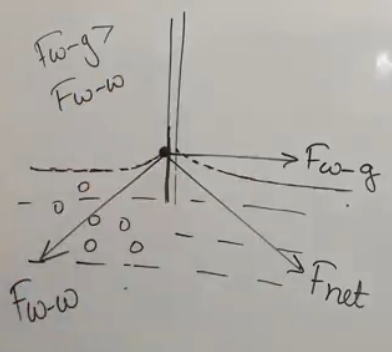 Fw-g >
Fw-w
Fw-g
Fw-w
Fnet